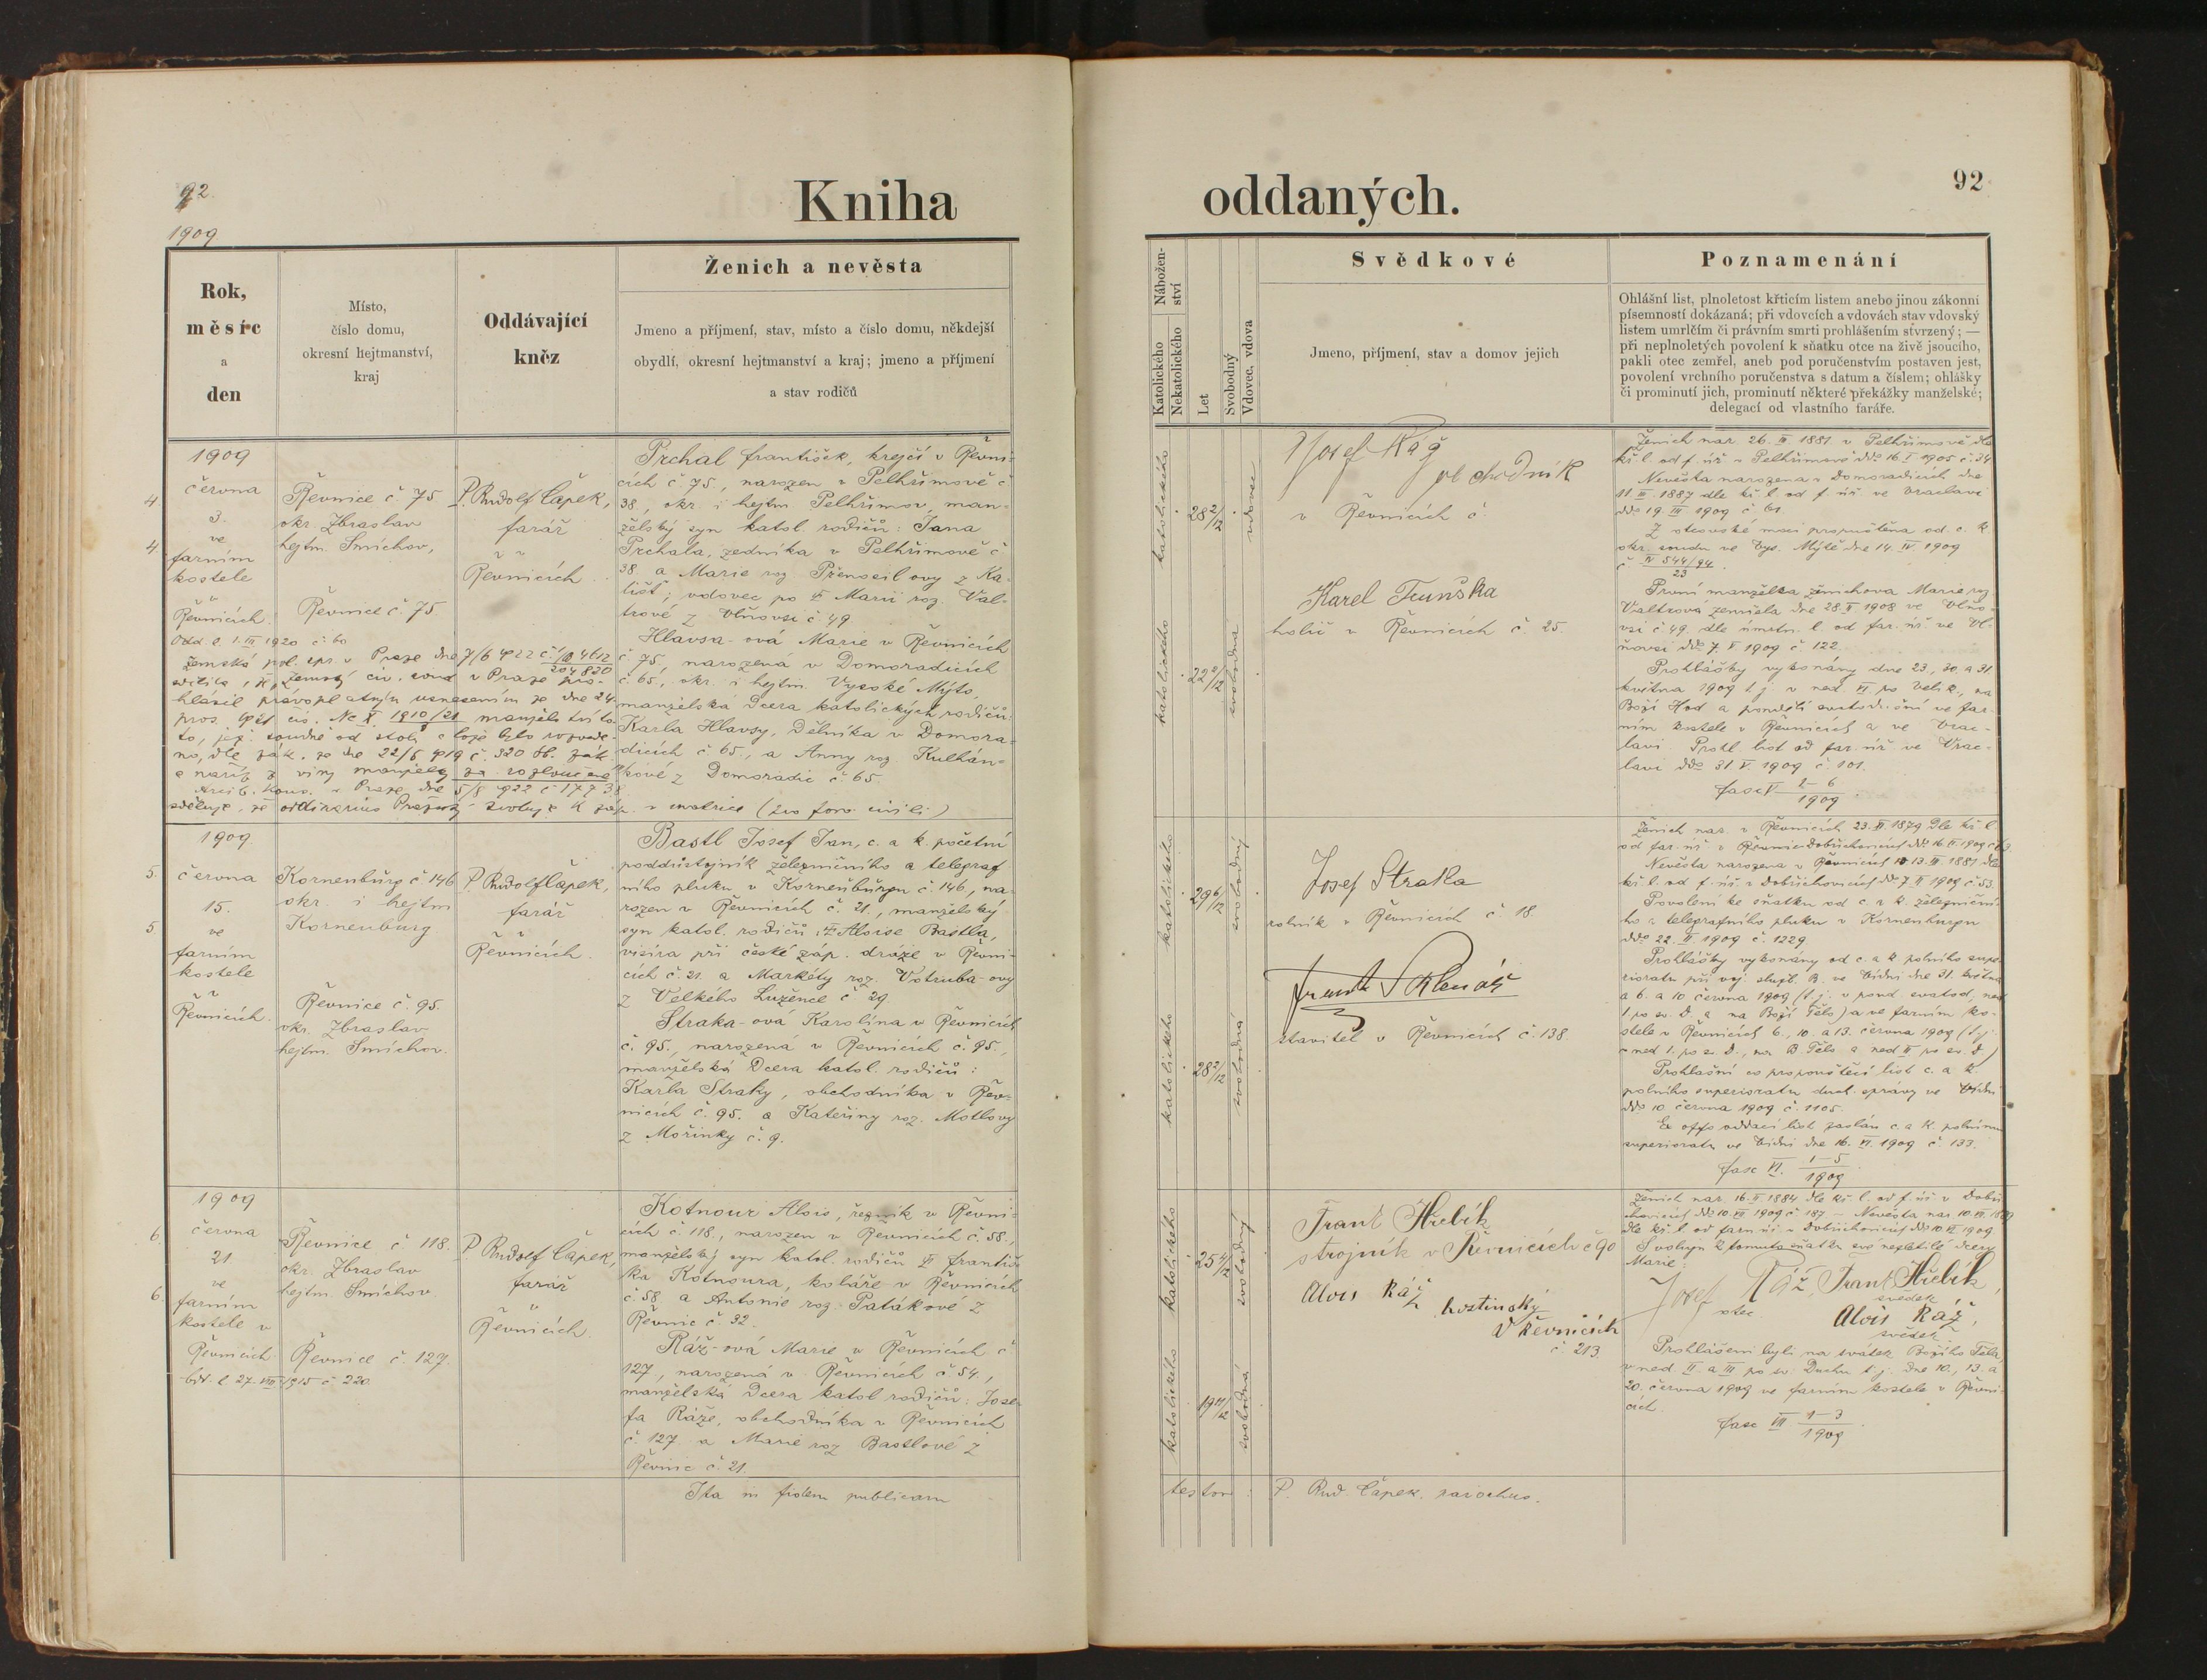 92.
Kniha
1909
Rok,
měsíc
a
den
Místo,
číslo domu,
okresní hejtmanství,
kraj
Oddávající
kněz
Ženich a nevěsta
Jmeno a příjmení, stav, místo a číslo domu, někdejší
obydlí, okresní hejtmanství a kraj; jmeno a příjmení
a stav rodičů
4.
4
1909
června
3.
ve
farním
kostele
v
Řevnicích.
Řevnice č. 75
okr. Zbraslav
hejtm. Smíchov,
Řevnice č. 75
P. Rudolf Čapek,
farář
v
Řevnicích.
Prchal František, krejčí v Řevni-
cích č. 75, narozen v Pelhřimově č
38, okr. i hejtm. Pelhřimov, man-
želský syn katol. rodičů: Jana
Prchala, zedníka v Pelhřimově č
38. a Marie roz. Přenosilovy z Ka-
lišť; vdovec po Marii roz. Val-
trové z Vlňovsi č. 49
Hlavsa-ová Marie v Řevnicích
č 75, narozená v Domoradicích
č. 65, okr. i hejtm. Vysoké Mýto,
manželská dcera katolických rodičů:
Karla Hlavsy, dělníka v Domora-
dicích č 65, a Anny roz. Kulhán-
kové z Domoradic č. 65.
Odd. l. 1. III 1920 č. 60
Zemská pol. spr. v Praze dne 7/6 922 č.
204820
sdělila, že zemský civ. soud v Praze pro-
hlásil právoplatným usnesením ze dne 24.
pros. čís. Nc X 1910/21 manželství to-
to, jež soudně od stolu a lože bylo rozvede-
no, dle zák. ze dne 22/5 919 č. 320 sb. zák.
a nař. z viny manželky za rozloučené
Arcib. kons. v Praze dne 5/8 922 č 1793
sděluje, že ordinariát Pražský svoluje k záp. v matrice (pro foro civili)
5.
5.
1909
června
15.
ve
farním
kostele
v
Řevnicích.
Kornenburg č. 146
okr. i hejtm
Kornenburg
Řevnice č. 95.
okr. Zbraslav
hejtm. Smíchov.
P. Rudolf Čapek,
farář
v
Řevnicích.
Bastl Josef Jan, c. a k. početní
poddůstojník železničního a telegraf-
ního pluku v Kornenburgu č. 146, na-
rozen v Řevnicích č. 21., manželský
syn katol. rodičů: Aloise Bastla,
visíra při české záp. dráze v Řevni-
cích č. 21. a Markéty roz. Votruba-ovy
z Velkého Lužence č 29.
Straka-ová Karolína v Řevnicích
č. 95., narozená v Řevnicích č. 95.,
manželská dcera katol. rodičů:
Karla Straky, obchodníka v Řev-
nicích č. 95. a Kateřiny roz. Motlovy
z Mořinky č. 9.
6.
6.
1909
června
21.
ve
farním
kostele v
Řevnicích
Řevnice č 118.
okr. Zbraslav
hejtm. Smíchov.
Řevnice č. 127.
odd. l. 27. VIII. 1915 č 220.
P. Rudolf Čapek,
farář
v
Řevnicích.
Kotnour Alois, řezník v Řevni-
cích č. 118., narozen v Řevnicích č. 58.,
manželský syn katol. rodičů Františ-
ka Kotnoura, koláře v Řevnicích
č. 58 a Antonie roz. Patákové z
Řevnic č. 32.
Ráž-ová Marie v Řevnicích č
127, narozená v Řevnicích č. 54.,
manželská dcera katol rodičů: Jose-
fa Ráže, obchodníka v Řevnicích
č. 127 a Marie roz Bastlové z
Řevnic č. 21.
Ita in fidem publicam
oddaných.
92
Nábožen-
ství
Katolického
Nekatolického
Let
Svobodný
Vdovec, vdova
Svědkové
Jmeno, příjmení, stav a domov jejich
Poznamenání
Ohlášní list, plnoletost křticím listem anebo jinou zákonní
písemností dokázaná; při vdovcích a vdovách stav vdovský
listem umrlčím či právním smrti prohlášením stvrzený; —
při neplnoletých povolení k sňatku otce na živě jsoucího,
pakli otec zemřel, aneb pod poručenstvím postaven jest,
povolení vrchního poručenstva s datum a číslem; ohlášky
či prominutí jich, prominutí některé překážky manželské;
delegací od vlastního faráře.
katolického
28 2/12
vdovec
katolického
svobodná
Josef Ráž
obchodník
v Řevnicích č
Karel Truňska
holič v Řevnicích č. 25.
Ženich nar. 26. III. 1881 v Pelhřimově dle
kř. l. od f. úř. v Pelhřimově ddo 16. I 1905 č. 34
Nevěsta narozena v Domoradicích dne
11. 1887 dle kř. l. od f. úř. ve Vraclavi
ddo 19. III. 1909 č 61
Z otcovské moci propuštěna od c. k
okr. soudu ve Vys. Mýtě dne 14. IV. 1909
č IV 544/94
23
První manželka ženichova Marie roz
Valtrova zemřela dne 28. 1908 ve Vlňo-
vsi č 49 dle úmrtn. l. od far. úř. ve Vl-
ňovsi ddo 7. V 1909 č. 122.
Prohlášky vykonány dne 23., 30. a 31.
května 1909 t. j. v ned. VI. po Velik., na
Boží Hod a pondělí svatodušní ve far-
ním kostele v Řevnicích a ve Vrac-
lavi. Prohl. list od far. úř. ve Vrac-
lavi ddo 31 V 1909 č. 101.
fasc V 2-6
1909
katolického
29 6/12
svobodný
katolického
28 2/12
svobodná
Josef Straka
rolník v Řevnicích č. 18.
Frant Sklenář
stavitel v Řevnicích č. 138.
Ženich nar. v Řevnicích 23. 1879 dle kř. l.
Nevěsta narozena v Řevnicích 13. 1881 dle
kř. l. od f. úř. v Dobřichovicích ddo 7. 1909 č 53.
Povolení ke sňatku od c. a k. železniční-
ho a telegrafního pluku v Kornenburgu
ddo 22. 1909 č. 1229.
Prohlášky vykonány od c. a k. polního supe-
rioratu při voj. duch. ve Vídni dne 31. května
a 6. a 10 června 1909 (t. j. v pond. svatod., ned
1. po sv. D. a na Boží Tělo) a ve farním ko-
stele v Řevnicích 6., 10. a 13. června 1909 (t. j.
v ned 1. po sv. D., na B. Tělo a ned. II po sv. D.)
Prohlašní co propouštěcí list c. a k.
polního superioratu duch. správy ve Vídni
ddo 10. června 1909 č. 1105.
Ex offo oddací list zaslán c. a k. polnímu
superioratu ve Vídni dne 16. VI. 1909 č. 133.
fasc VI. 1-5
1909
katolického
25 4/12
svobodný
katolického
19 11/12
svobodná
Frant Hrubík
strojník v Řevnicích č 90
Alois Ráž
hostinský
v Řevnicích
č. 213.
Ženich nar. 16. 1884 dle kř. l. od f. úř v Dobři-
chovicích ddo 10. VI 1909 č 187 – Nevěsta nar. 10.
dle kř. l. od farn úř. v Dobřichovicích ddo 10. VI 1909
Svoluji k tomuto sňatku své nezletilé dcery
Marie:
Josef Ráž, Frant Hrubík,
otec svědek
Alois Ráž,
svědek.
Prohlášeni byli na svátek Božího Těla,
v ned. II. a III po sv. Duchu t. j. dne 10., 13. a
20. června 1909 ve farním kostele v Řevni-
cích.
fasc VII 1-3
1909
testor: P. Rud. Čapek, parochus.